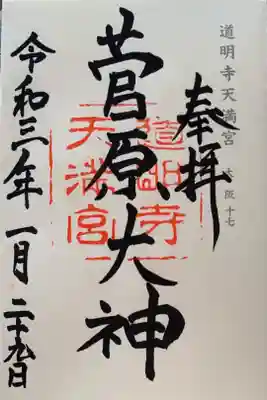 道明寺天満宮 大阪 十七
奉拝
菅原大神
道明寺
天満宮
令和三年 一月 二十九日